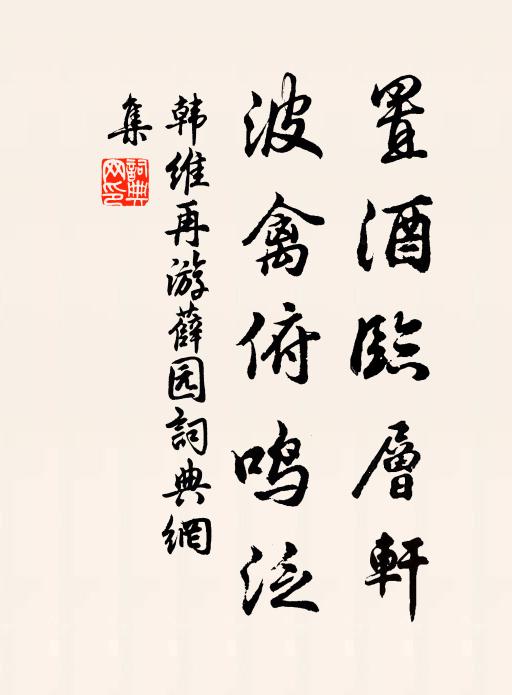 置酒臨層軒
波禽俯鳴泛
韩維再游薛园詞典網
集
詞典網印